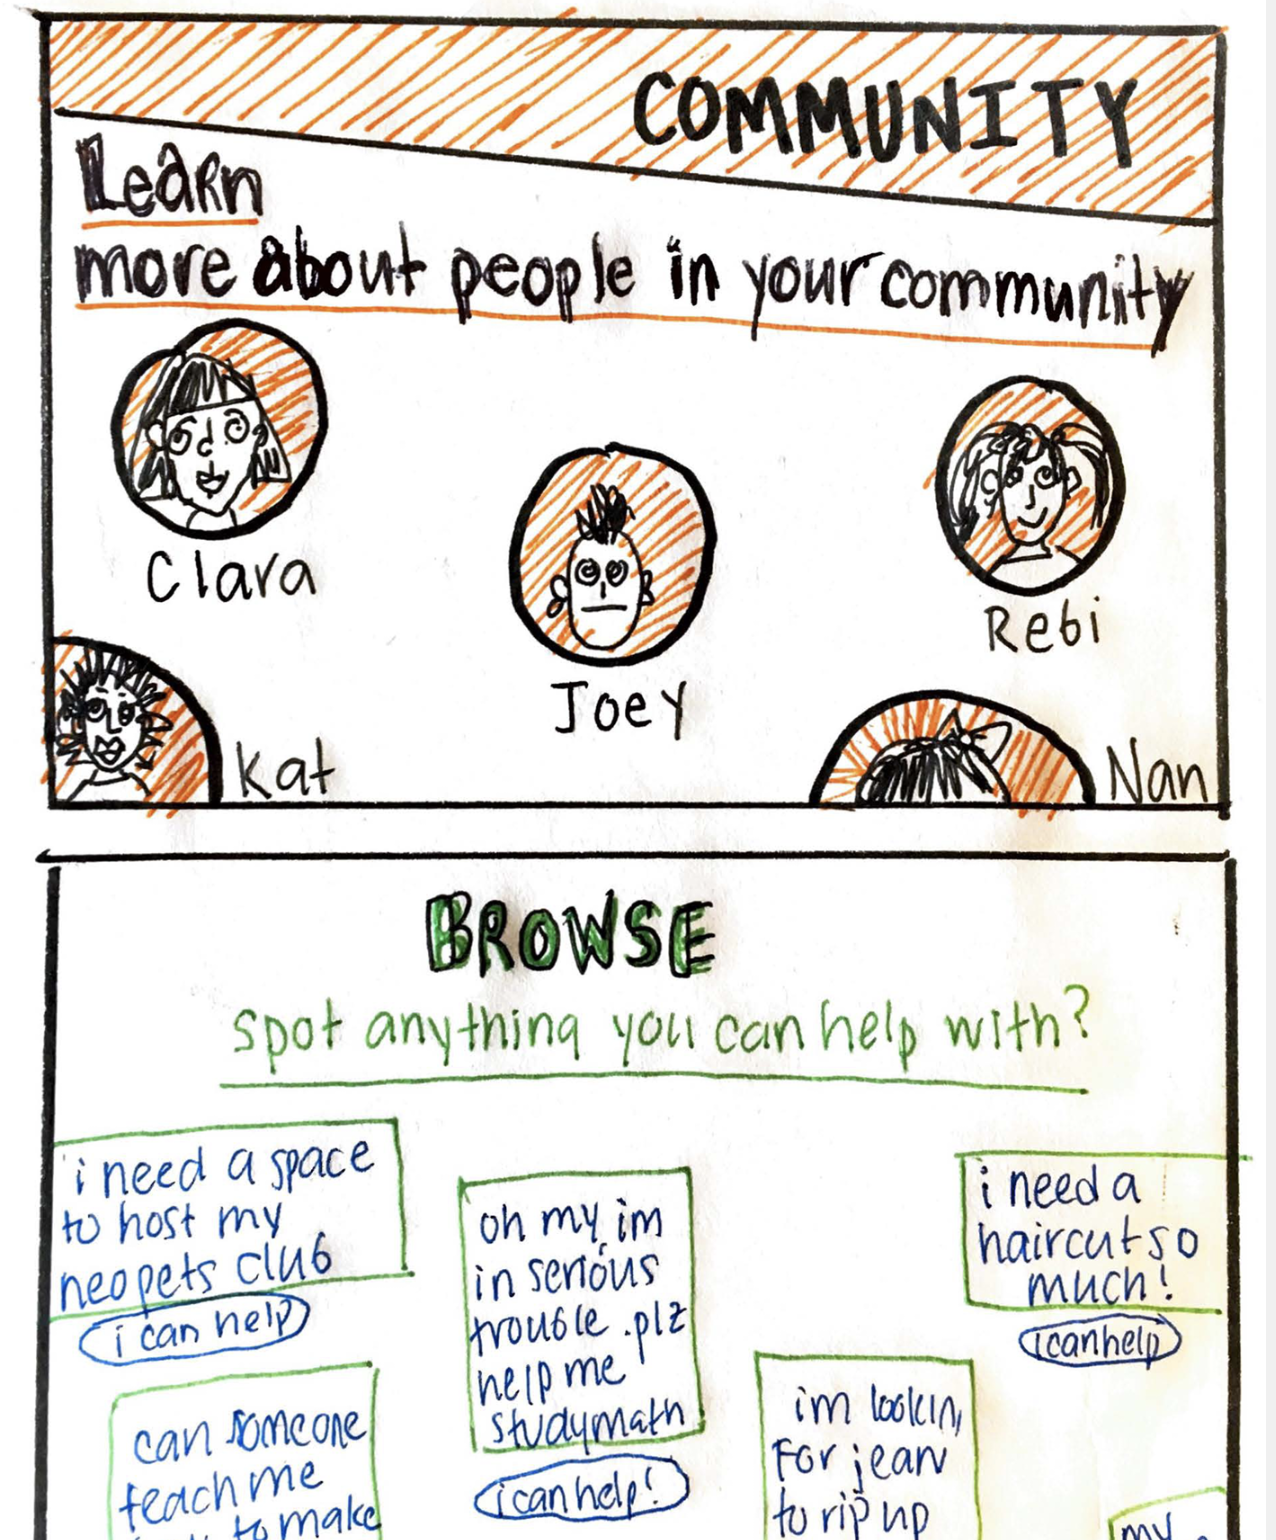 COMMUNITY
Learn
more about people in your community
Clara
Joey
Rebi
Kat
Nan
BROWSE
spot anything you can help with?
i need a space
to host my
neopets club
i can help
oh my im
in serious
trouble .plz
help me
study math
i can help!
i need a
haircut so
much!
i can help
can someone
teach me
to make
im lookin
For jean
to rip up
my